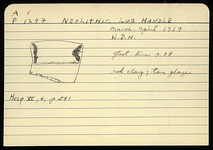 A
P 1297 NEOLITHIC LUG HANDLE
March-April 1937
W.D.H.
gtest. dim. 0.08
red clay; tan glaze
Hesp VI, 4, p 541